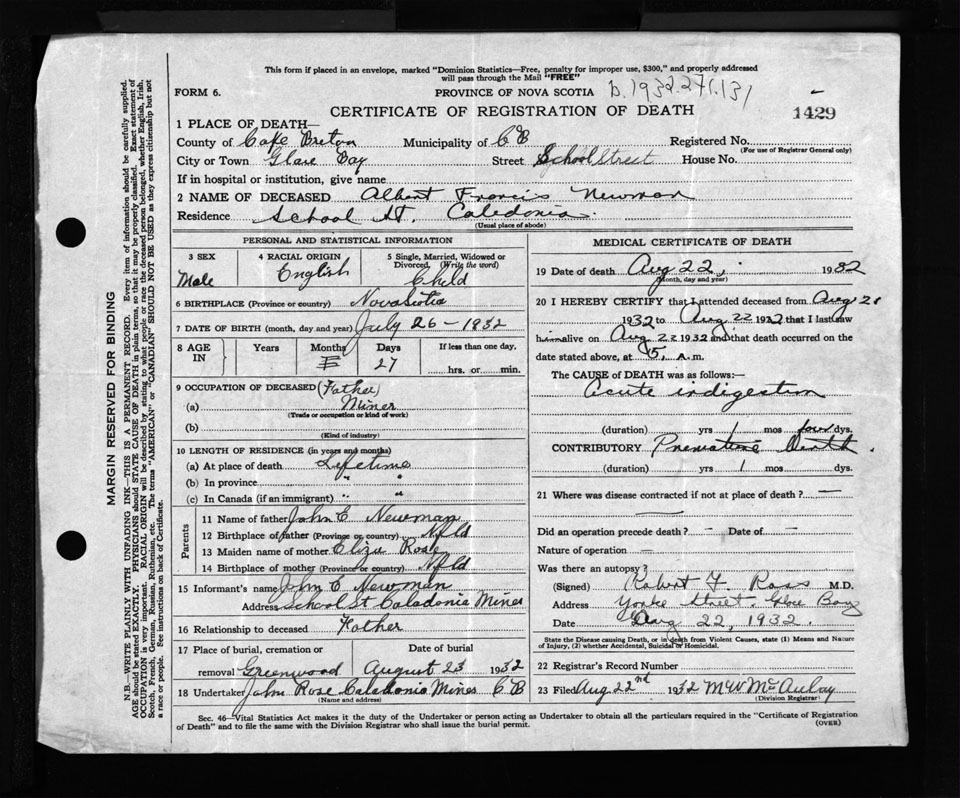 This form if placed in an envelope, marked "Dominion Statistics—Free, penalty for improper use, $300," and properly addressed
will pass through the Mail "FREE"
FORM 6. PROVINCE OF NOVA SCOTIA
CERTIFICATE OF REGISTRATION OF DEATH 1429
1 PLACE OF DEATH—
County of Cape Breton Municipality of CB Registered No.
(For use of Registrar General only)
City or Town Glace Bay Street School Street House No.
If in hospital or institution, give name
2 NAME OF DECEASED Albert Francis Newman
Residence School St. Caledonia.
(Usual place of abode)
PERSONAL AND STATISTICAL INFORMATION
3 SEX 4 RACIAL ORIGIN 5 Single, Married, Widowed or
Divorced, (Write the word)
Male English Child
6 BIRTHPLACE (Province or country) Nova Scotia
7 DATE OF BIRTH (month, day and year) July 26 – 1932
8 AGE IN Years Months Days If less than one day,
27 hrs. or min.
9 OCCUPATION OF DECEASED (Father)
(a) Miner
(Trade or occupation or kind of work)
(b)
(Kind of industry)
10 LENGTH OF RESIDENCE (in years and months)
(a) At place of death Lifetime
(b) In province " "
(c) In Canada (if an immigrant) " "
Parents
11 Name of father John C Newman
12 Birthplace of father (Province or country) Nfld
13 Maiden name of mother Eliza Rose
14 Birthplace of mother (Province or country) Nfld
15 Informant's name John C Newman
Address School St Caladonia Mines
16 Relationship to deceased Father
17 Place of burial, cremation or Date of burial
removal Greenwood August 23 1932
18 Undertaker John Rose Caladonia Mines CB
(Name and address)
MEDICAL CERTIFICATE OF DEATH
19 Date of death Aug 22, 1932
(Month, day and year)
20 I HEREBY CERTIFY that I attended deceased from Aug 21
1932 to Aug 22 1932 that I last saw
him alive on Aug 22 1932 and that death occurred on the
date stated above, at 5, A.m.
The CAUSE of DEATH was as follows:—
Acute indigestion
(duration) yrs 1 mos four dys.
CONTRIBUTORY Premature Birth.
(duration) yrs 1 mos dys.
21 Where was disease contracted if not at place of death? —
Did an operation precede death? – Date of –
Nature of operation —
Was there an autopsy?
(Signed) Robert F. Ross M.D.
Address Yorke Street. Glace Bay
Date Aug 22, 1932.
State the Disease causing Death, or in death from Violent Causes, state (1) Means and Nature
of Injury, (2) whether Accidental, Suicidal or Homicidal.
22 Registrar's Record Number
23 Filed Aug 22nd 1932 M W McAulay
(Division Registrar)
Sec. 46—Vital Statistics Act makes it the duty of the Undertaker or person acting as Undertaker to obtain all the particulars required in the "Certificate of Registration
of Death" and to file the same with the Division Registrar who shall issue the burial permit. (OVER)
MARGIN RESERVED FOR BINDING
N.B.—WRITE PLAINLY WITH UNFADING INK—THIS IS A PERMANENT RECORD. Every item of information should be carefully supplied.
AGE should be stated EXACTLY. PHYSICIANS should STATE CAUSE OF DEATH in plain terms, so that it may be properly classified. Exact statement of
OCCUPATION is very important. RACIAL ORIGIN will be described by stating to what people or race the deceased person belonged, whether English, Irish,
Scotch, French, German, Russian, Ruthenian, etc. The terms "AMERICAN" or "CANADIAN" SHOULD NOT BE USED as they express citizenship but not
a race or people. See instructions on back of Certificate.